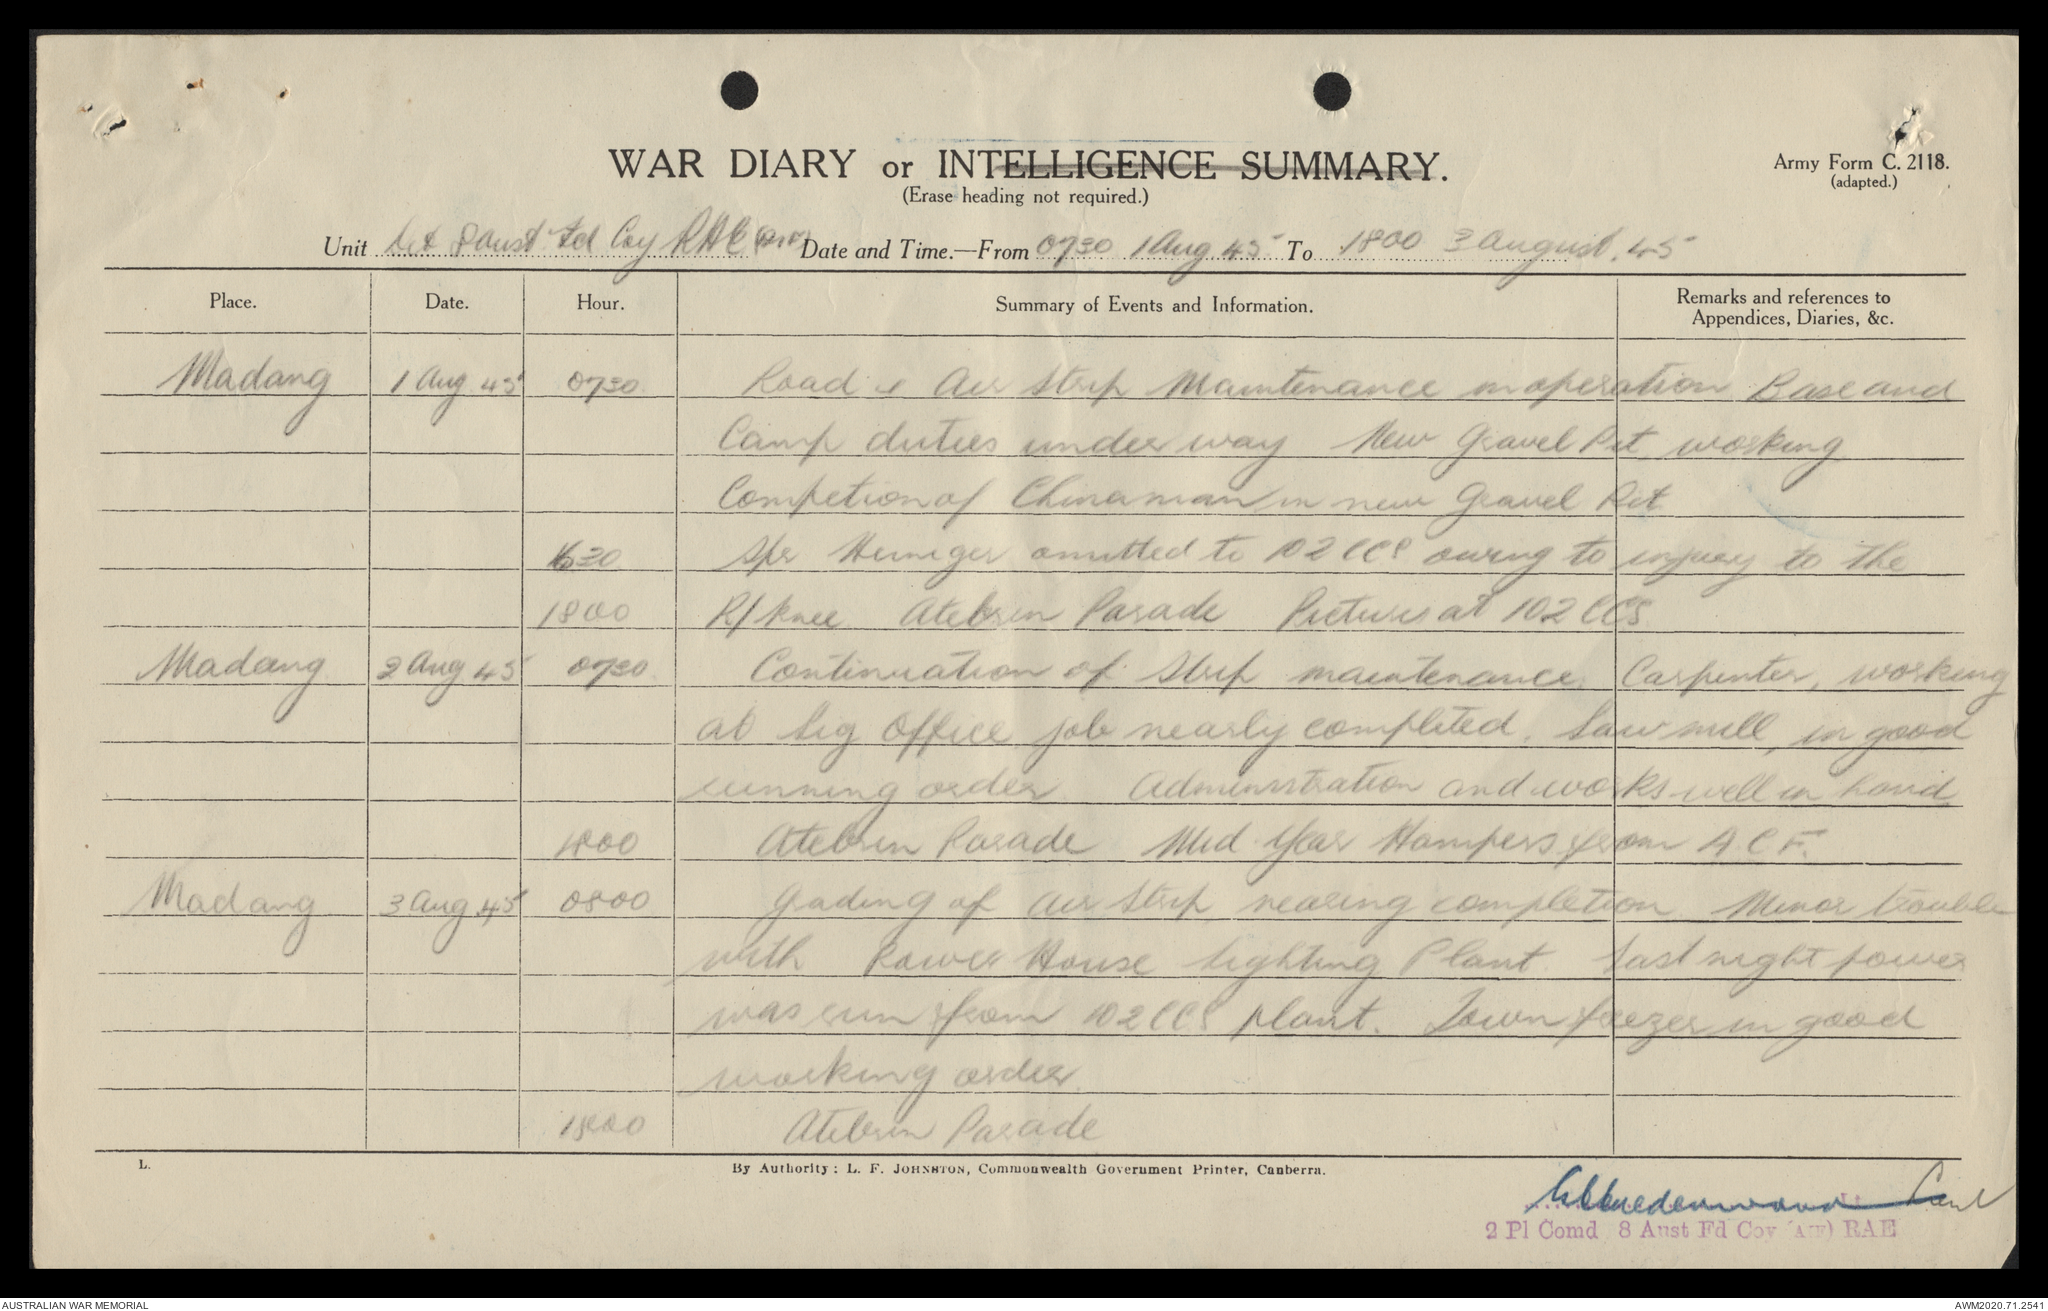 WAR DIARY or INTELLIGENCE SUMMARY.
(Erase heading not required.)
Army Form C. 2118.
(adapted.)
Unit Det 8 Aust Fd Coy RAE (AIF) Date and Time.—From 0730 1 Aug. 45 To 1800 3 August. 45
Place. Date. Hour. Summary of Events and Information. Remarks and references to Appendices, Diaries, &c.
Madang 1 Aug 45 0730 Road & Air Strip Maintenance in operation Base and
Camp duties under way New Gravel Pit working
Competion of Chinaman in new Gravel Pit
1630 Spr Heineger amitted to 102 CCS owing to injury to the
1800 R/knee Atebrin Parade Pictures at 102 CCS
Madang 2 Aug 45 0730 Continuation of Strip maintenance Carpenter, working
at Sig Office job nearly completed. Saw mill, in good
running order Administration and works well in hand
1800 Atebrin Parade Mid Year Hampers from A.C.F.
Madang 3 Aug 45 0800 Grading of Air Strip nearing completion Minor trouble
with Power House lighting Plant. Last night power
was run from 102 CCS plant. Town freezer in good
working order.
1800 Atebrin Parade
L.
By Authority: L. F. JOHNSTON, Commonwealth Government Printer, Canberra.
Lt
2 Pl Comd 8 Aust Fd Coy (AIF) RAE
AUSTRALIAN WAR MEMORIAL
AWM2020.71.2541